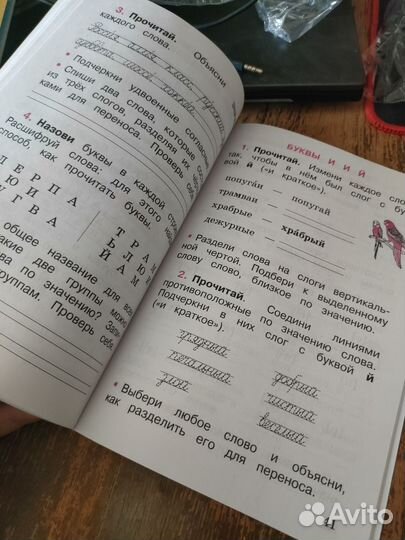 3. Прочитай. Объясни
каждого слова.
• Подчеркни удвоенные
• Спиши два слова, которые
из трёх слогов разделяя их
ками для переноса. Проверь
4. Назови буквы в каждой
Расшифруй слова: для этого
способ, как прочитать буквы.
ЛЕРПА
ТРАМ
ЬЛЮ
ЙАМ
общее название для
какие две группы можно
по значению?
группам. Проверь себя
БУКВЫ И И Й
1. Прочитай. Измени каждое
так, чтобы в нём был слог с
вой й («и краткое»).
попуга́и — попугай
трамваи —
храбрые — хра́брый
дежурные —
• Раздели слова на слоги вертикаль-
ной чертой. Подбери к выделенному
слову слово, близкое по значению.
2. Прочитай. Соедини линиями
противоположные по значению слова.
Подчеркни в них слог с буквой й
(«и краткое»).
грязный
печальный
злой
добрый
чистый
весёлый
• Выбери любое слово и объясни,
как разделить его для переноса.
41
Avito